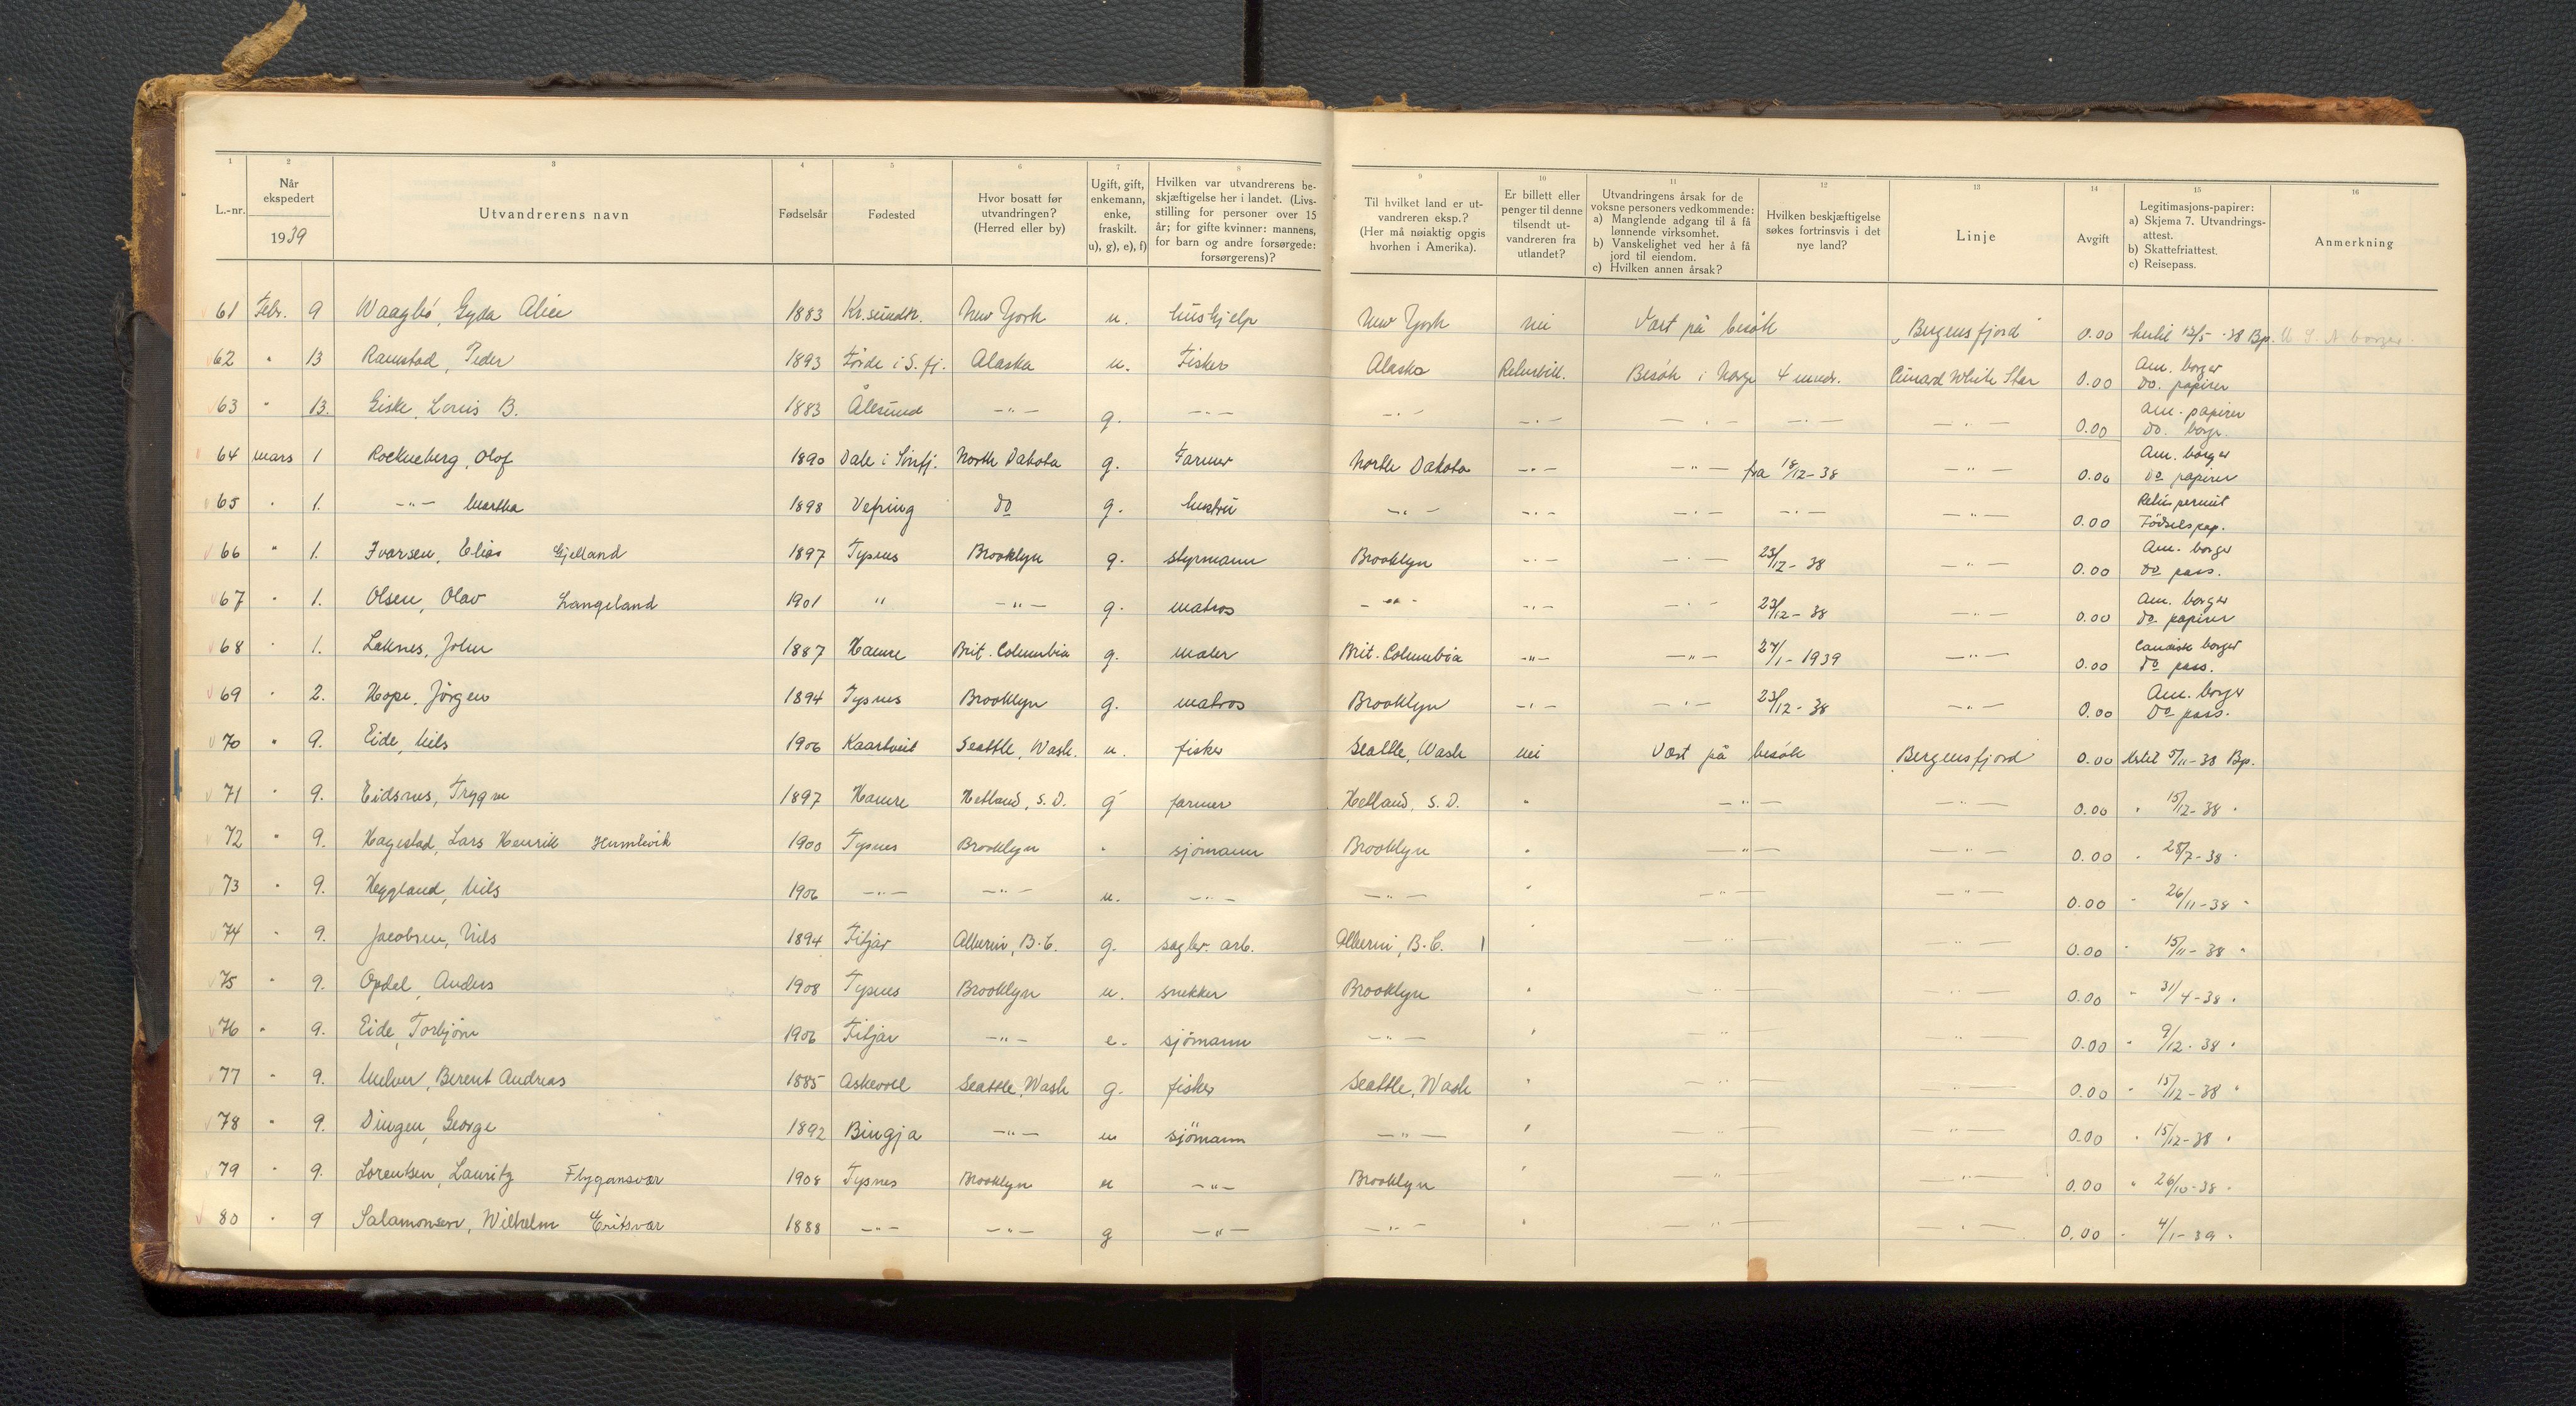 1 2 3 4 5 6 7 8 9 10 11 12 13 14 15 16
L.-nr. | Når ekspedert 1939 | Utvandrerens navn | Fødselsår | Fødested | Hvor bosatt før utvandringen? (Herred eller by) | Ugift, gift, enkemann, enke, fraskilt. u), g), e), f) | Hvilken var utvandrerens beskjæftigelse her i landet. (Livsstilling for personer over 15 år; for gifte kvinner: mannens, for barn og andre forsørgede: forsørgerens)? | Til hvilket land er utvandreren eksp.? (Her må nøiaktig opgis hvorhen i Amerika). | Er billett eller penger til denne tilsendt utvandreren fra utlandet? | Utvandringens årsak for de voksne personers vedkommende: a) Manglende adgang til å få lønnende virksomhet. b) Vanskelighet ved her å få jord til eiendom. c) Hvilken annen årsak? | Hvilken beskjæftigelse søkes fortrinsvis i det nye land? | Linje | Avgift | Legitimasjons-papirer: a) Skjema 7. Utvandringsattest. b) Skattefriattest. c) Reisepass. | Anmerkning
61 Febr. 9 Waagbö, Gyda Alice 1883 Kr.sundn. New York u. hushjelp New York nei Vært på besök "Bergensfjord" 0.00 12/5 -38 Bp. U.S.A. borger
62 " 13 Ramstad, Peder 1893 Förde i S.fj. Alaska u. Fisker Alaska Returbill. Besök i Norge 4 mndr. Cunard White Star 0.00 Am. borger do. papirer
63 " 13. Giske, Louis B. 1883 Ålesund -"- g. -"- -"- -"- -"- -"- -"- 0.00 Am. papirer do. borger
64 mars 1 Rockneberg, Olof 1890 Dale i Sunfj. North Dakota g. Farmer North Dakota -"- -"- fra 18/12-38 -"- 0.00 Am. borger do papirer
65 " 1. -"- Martha 1898 Vefring do g. hustru -"- -"- -"- -"- -"- 0.00 permit Födselspap.
66 " 1. Ivarsen, Elias Gjelland 1897 Tysnes Brooklyn g. styrmann Brooklyn -"- -"- 23/12-38 -"- 0.00 Am. borger do pass.
67 " 1. Olsen, Olav Langeland 1901 " -"- g. matros -"- -"- -"- 23/12-38 -"- 0.00 Am. borger do papirer
68 " 1. Laknes, John 1887 Hamre Brit. Columbia g. maler Brit. Columbia -"- -"- 27/1-1939 -"- 0.00 borger do pass.
69 " 2. Hope, Jörgen 1894 Tysnes Brooklyn g. matros Brooklyn -"- -"- 23/12-38 -"- 0.00 Am. borger do pass.
70 " 9. Eide, Nils 1906 Kaartveit Seattle, Wash. u. fisker Seattle, Wash nei Vært på besök "Bergensfjord" 0.00 5/11-38 Bp.
71 " 9. Eidsnes, Trygve 1897 Hamre Hetland, S.D. g farmer Hetland, S.D. " -"- -"- 0.00 " 15/12-38 "
72 " 9. Hagestad, Lars Henrik Humlevik 1900 Tysnes Brooklyn " sjömann Brooklyn " -"- -"- 0.00 " 28/7-38 "
73 " 9. Heggland, Nils 1906 -"- -"- u. -"- -"- " -"- -"- 0.00 " 26/11-38 "
74 " 9. Jacobsen, Nils 1894 Fitjar Alberni, B.C. g. sagbr. arb. Alberni, B.C. " -"- -"- 0.00 " 15/11-38 "
75 " 9. Opdel, Anders 1908 Tysnes Brooklyn u. snekker Brooklyn " -"- -"- 0.00 " 31/4-38 "
76 " 9. Eide, Torbjörn 1906 Fitjar -"- e. sjömann -"- " -"- -"- 0.00 " 9/12-38 "
77 " 9. Melver, Berent Andreas 1885 Askevoll Seattle, Wash g. fisker Seattle, Wash " -"- -"- 0.00 " 15/12-38 "
78 " 9. Dingen, George 1892 Bingja -"- u sjömann -"- " -"- -"- 0.00 " 15/12-38 "
79 " 9. Lorentsen, Lauritz Flygansvær 1908 Tysnes Brooklyn u -"- Brooklyn " -"- -"- 0.00 " 26/10-38 "
80 " 9 Salamonsen, Wilhelm 1888 -"- -"- g -"- -"- " -"- -"- 0.00 " 4/1-39 "